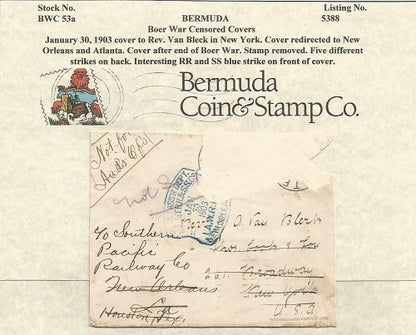 Stock No.
BWC 53a
BERMUDA
Boer War Censored Covers
Listing No.
5388
January 30, 1903 cover to Rev. Van Bleck in New York. Cover redirected to New
Orleans and Atlanta. Cover after end of Boer War. Stamp removed. Five different
strikes on back. Interesting RR and SS blue strike on front of cover.
Bermuda
Coin&Stamp Co.
Not for
not
JAN
1903
A. Van Bleck
c/o Southern
Pacific
Railway Co
New Orleans
La
Houston, Tex.
Broadway
New York
U.S.A